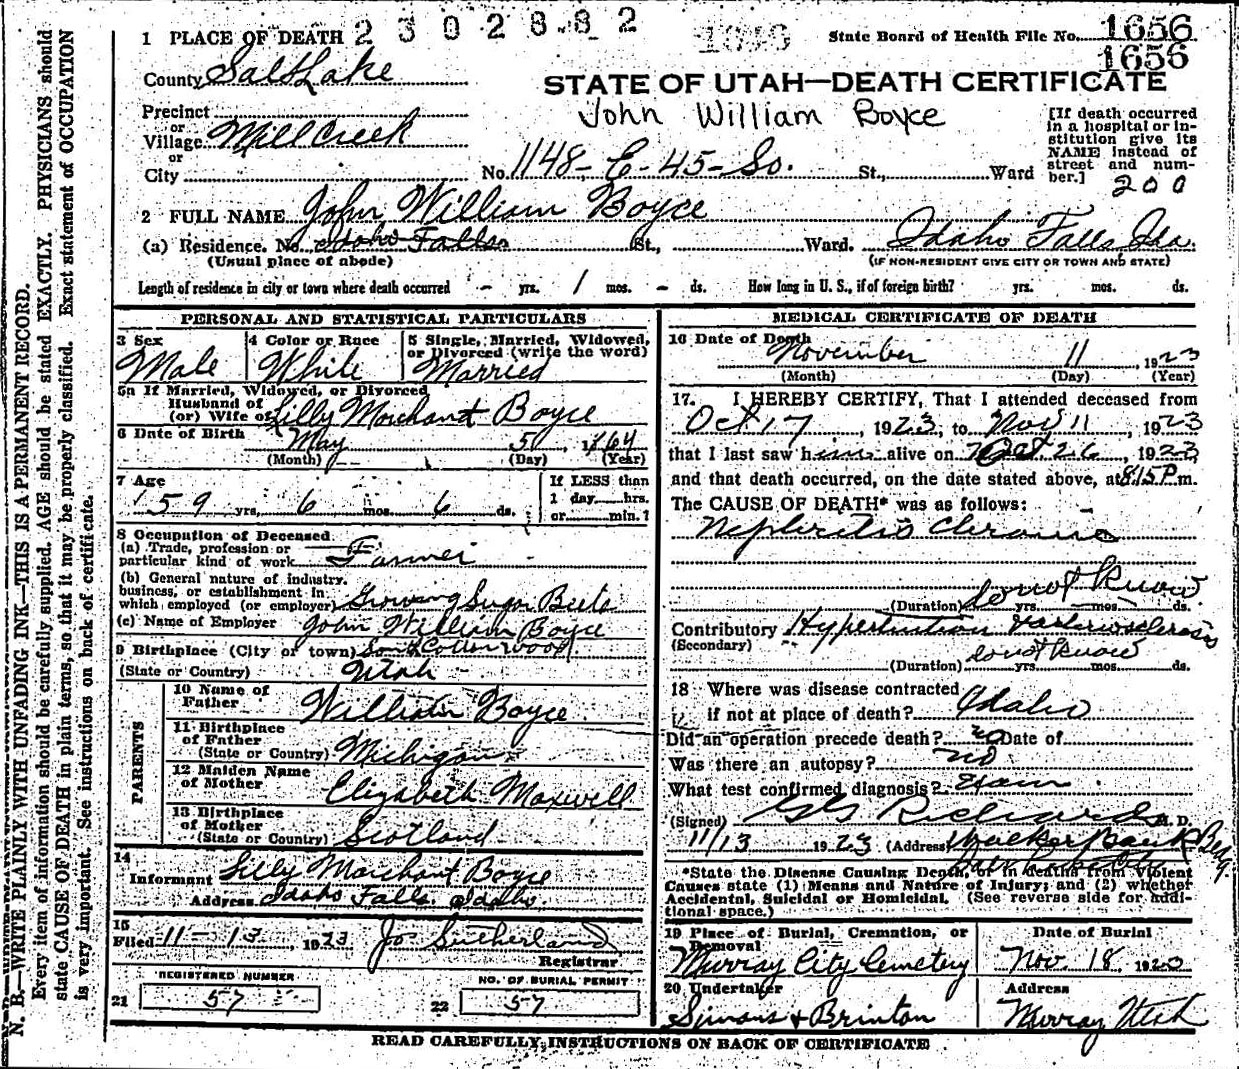 1 PLACE OF DEATH 2302882 1656 State Board of Health File No. 1656
1656
County Salt Lake
STATE OF UTAH—DEATH CERTIFICATE
John William Boyce
Precinct
or
Village Mill Creek
or
City No. 1148-E-45-So. St., Ward
[If death occurred
in a hospital or in-
stitution give its
NAME instead of
street and num-
ber.] 200
2 FULL NAME John William Boyce
(a) Residence. No. Idaho Falls St., Ward. Idaho Falls Ida.
(Usual place of abode) (IF NON-RESIDENT GIVE CITY OR TOWN AND STATE)
Length of residence in city or town where death occurred - yrs. 1 mos. - ds. How long in U. S., if of foreign birth? yrs. mos. ds.
PERSONAL AND STATISTICAL PARTICULARS
3 Sex 4 Color or Race 5 Single, Married, Widowed,
or Divorced (write the word)
Male White Married
5a If Married, Widowed, or Divorced
Husband of
(or) Wife of Lilly Marchant Boyce
6 Date of Birth May 5 1864
(Month) (Day) (Year)
7 Age If LESS than
59 yrs. 6 mos. 6 ds. 1 day hrs.
or min.?
8 Occupation of Deceased
(a) Trade, profession or
particular kind of work Farmer
(b) General nature of industry,
business, or establishment in
which employed (or employer) Growing Sugar Beets
(c) Name of Employer John William Boyce
9 Birthplace (City or town) South Cottonwood
(State or Country) Utah
PARENTS
10 Name of
Father William Boyce
11 Birthplace
of Father
(State or Country) Michigan
12 Maiden Name
of Mother Elizabeth Maxwell
13 Birthplace
of Mother
(State or Country) Scotland
14
Informant Lilly Marchant Boyce
Address Idaho Falls Idaho
15
Filed 11-13, 1923 Jos Sutherland
Registrar
REGISTERED NUMBER NO. OF BURIAL PERMIT
21 57 22 57
MEDICAL CERTIFICATE OF DEATH
16 Date of Death
November 11, 1923
(Month) (Day) (Year)
17. I HEREBY CERTIFY, That I attended deceased from
Oct 17, 1923, to Nov 11, 1923
that I last saw him alive on Oct 26, 1923
and that death occurred, on the date stated above, at 815 P.m.
The CAUSE OF DEATH* was as follows:
Nephritis Chronic
(Duration) do not know yrs. mos. ds.
Contributory Hypertension arteriosclerosis
(Secondary)
(Duration) do not know yrs. mos. ds.
18 Where was disease contracted
if not at place of death? Idaho
Did an operation precede death? no Date of
Was there an autopsy? no
What test confirmed diagnosis? Exam
(Signed) G G Richards M. D.
11/13 1923 (Address) Walker Bank Bldg.
Salt Lake City
*State the Disease Causing Death, or in deaths from Violent
Causes state (1) Means and Nature of Injury; and (2) whether
Accidental, Suicidal or Homicidal. (See reverse side for addi-
tional space.)
19 Place of Burial, Cremation, or
Removal
Date of Burial
Murray City Cemetery Nov. 18 1920
20 Undertaker Address
Simans & Brinton Murray Utah
READ CAREFULLY INSTRUCTIONS ON BACK OF CERTIFICATE
N. B.—WRITE PLAINLY WITH UNFADING INK—THIS IS A PERMANENT RECORD.
Every item of information should be carefully supplied. AGE should be stated EXACTLY. PHYSICIANS should
state CAUSE OF DEATH in plain terms, so that it may be properly classified. Exact statement of OCCUPATION
is very important. See instructions on back of certificate.